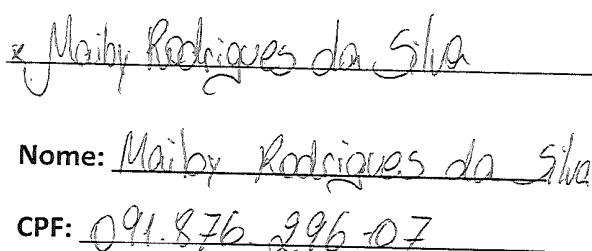 x Maiby Rodrigues da Silva
Nome: Maiby Rodrigues da Silva
CPF: 091.876.296-07